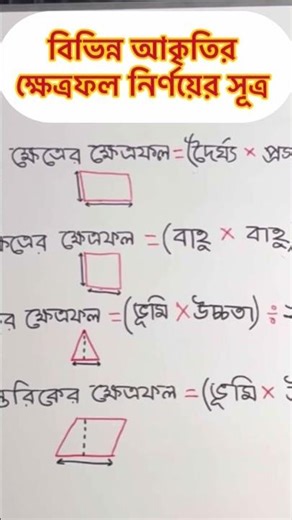 বিভিন্ন আকৃতির
ক্ষেত্রফল নির্ণয়ের সূত্র
ক্ষেত্রের ক্ষেত্রফল = (দৈর্ঘ্য ×
ক্ষেত্রফল = (বাহু × বাহু
ক্ষেত্রফল = (ভূমি × উচ্চতা) ÷
ক্ষেত্রফল = (ভূমি ×